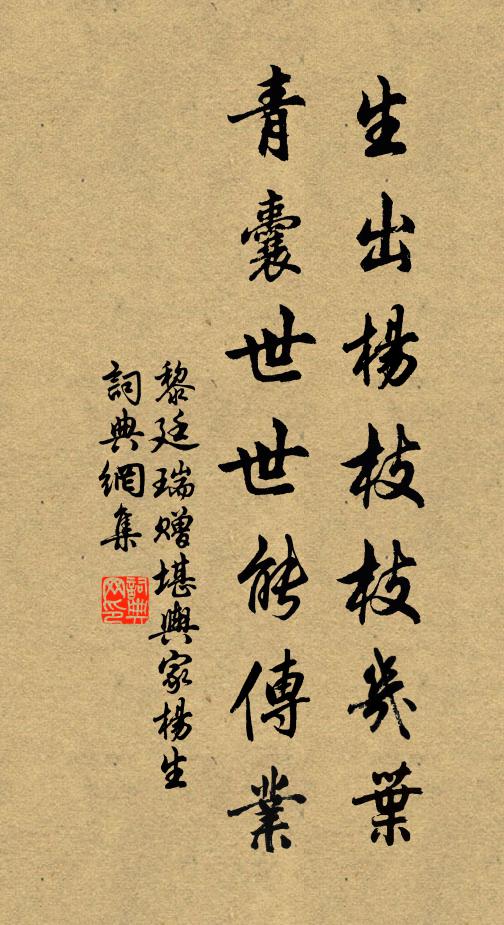 生出楊枝枝幾葉
青囊世世能傳業
黎廷瑞贈堪輿家楊生
詞典網集
詞典網印